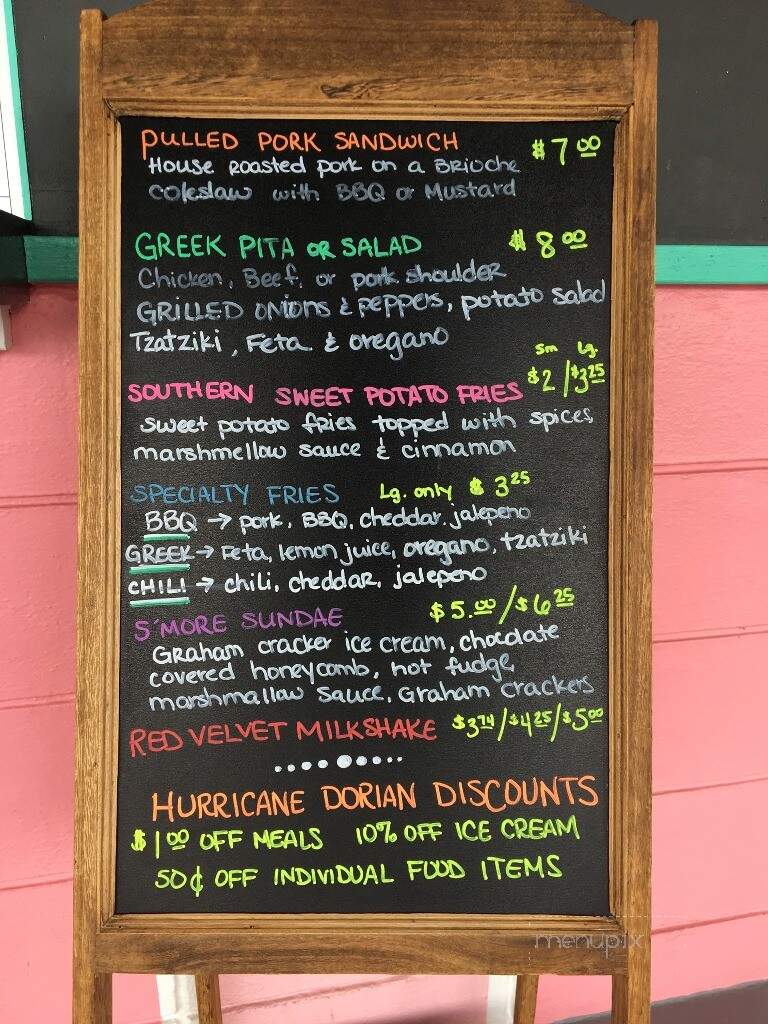 PULLED PORK SANDWICH $7.00
House roasted pork on a Brioche
coleslaw with BBQ or Mustard
GREEK PITA OR SALAD $8.00
Chicken, Beef, or pork shoulder
GRILLED ONIONS & PEPPERS, potato salad
Tzatziki, Feta & oregano
Sm Lg.
SOUTHERN SWEET POTATO FRIES $2/$3.25
sweet potato fries topped with spices,
marshmellow sauce & cinnamon
SPECIALTY FRIES Lg. only $3.25
BBQ → pork, BBQ, cheddar, jalepeno
GREEK → Feta, lemon juice, oregano, tzatziki
CHILI → chili, cheddar, jalepeno
S'MORE SUNDAE $5.00/$6.25
Graham cracker ice cream, chocolate
covered honeycomb, hot fudge,
marshmallow sauce, Graham crackers
RED VELVET MILKSHAKE $3.74/$4.25/$5.00
HURRICANE DORIAN DISCOUNTS
$1.00 OFF MEALS 10% OFF ICE CREAM
50¢ OFF INDIVIDUAL FOOD ITEMS
menupix